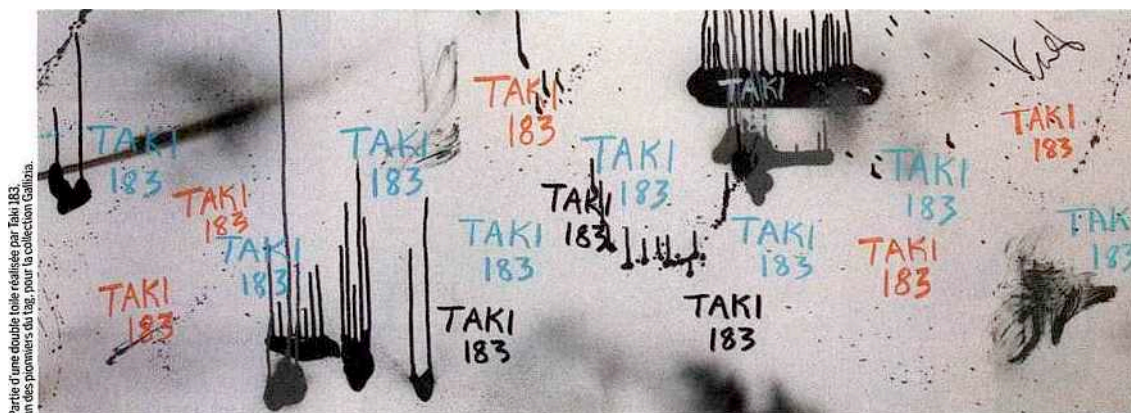 Partie d'une double toile réalisée par Taki 183,
un des pionniers du tag, pour la collection Gallizia.
TAKI
TAKI
183
TAKI
183
TAKI
183
TAKI
183
TAKI
183
TAKI
183
TAKI
183
TAKI
183
TAKI
183
TAKI
183
TAKI
183
TAKI
183
TAKI
183
TAKI
183
TAKI
183
TAKI
183